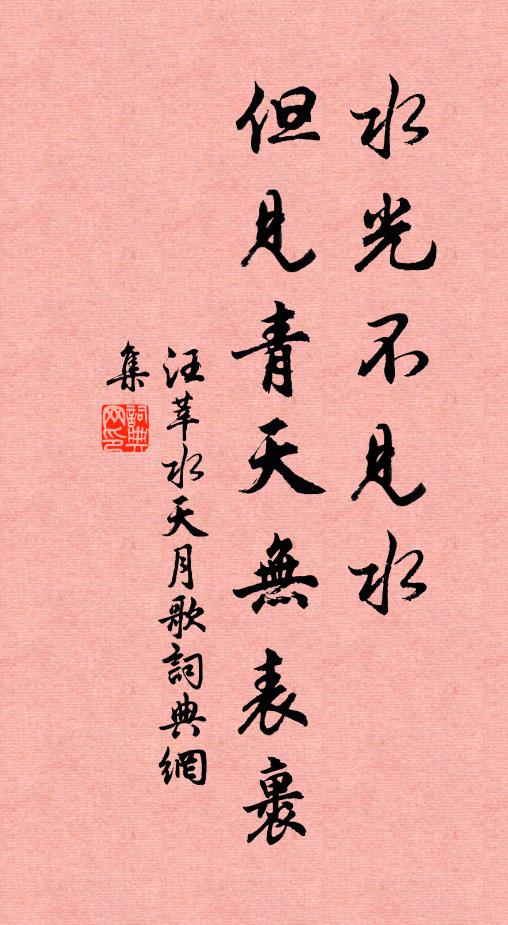 水光不見水
但見青天無表裏
汪莘水天月歌詞典網
集
詞典
网印